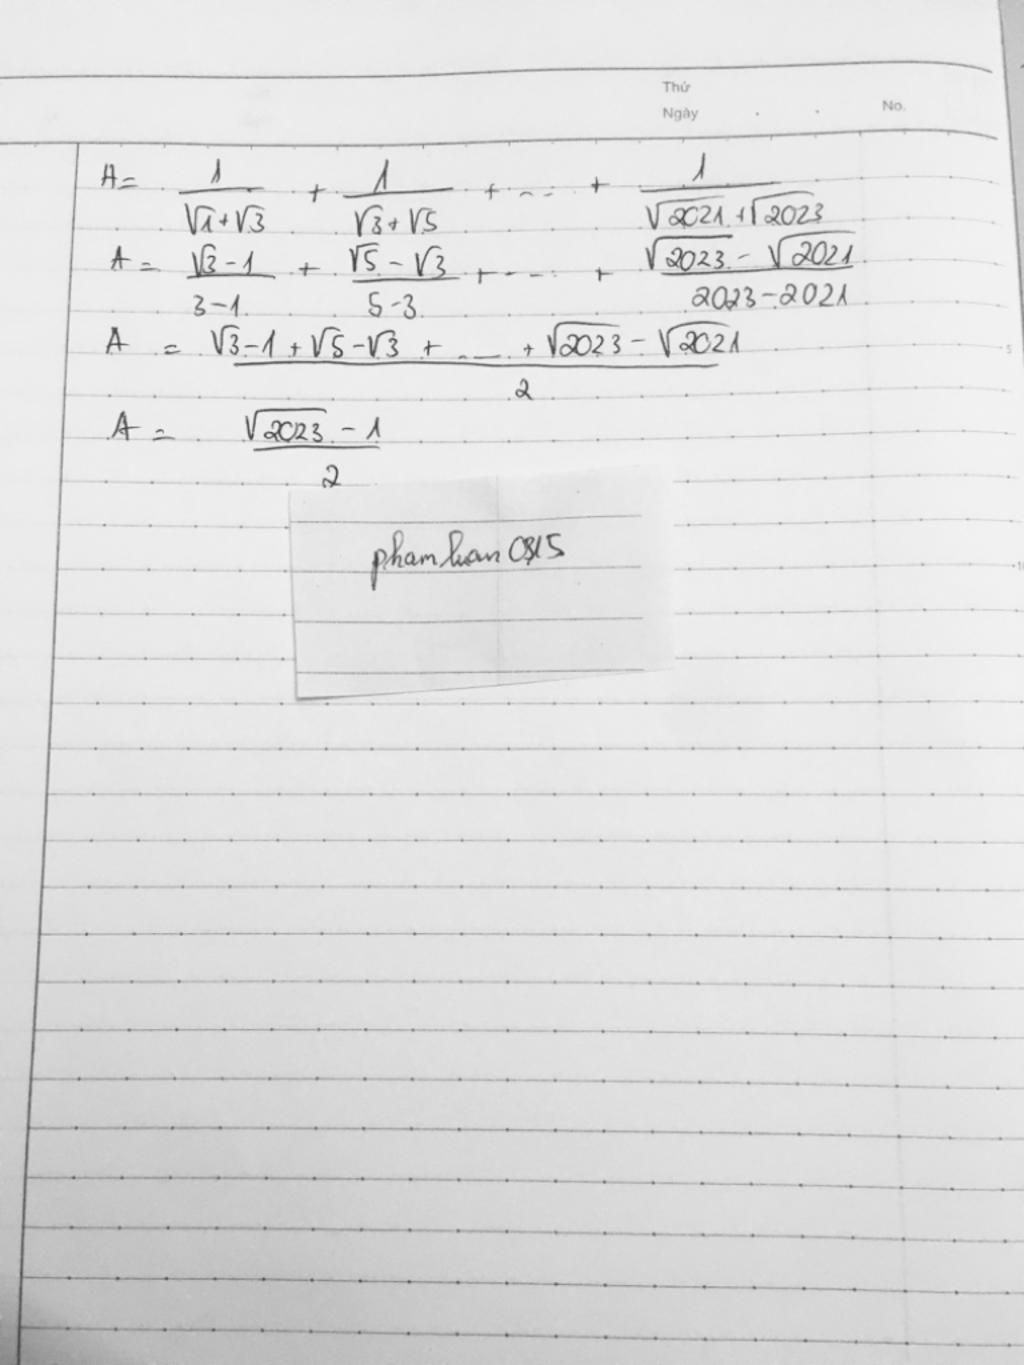 Thứ
Ngày . . No.
A = 1/(√1+√3) + 1/(√3+√5) + ... + 1/(√2021+√2023)
A = (√3-1)/(3-1) + (√5-√3)/(5-3) + ... + (√2023-√2021)/(2023-2021)
A = (√3-1+√5-√3+...+√2023-√2021)/2
5
A = (√2023-1)/2
phamluan0315
10